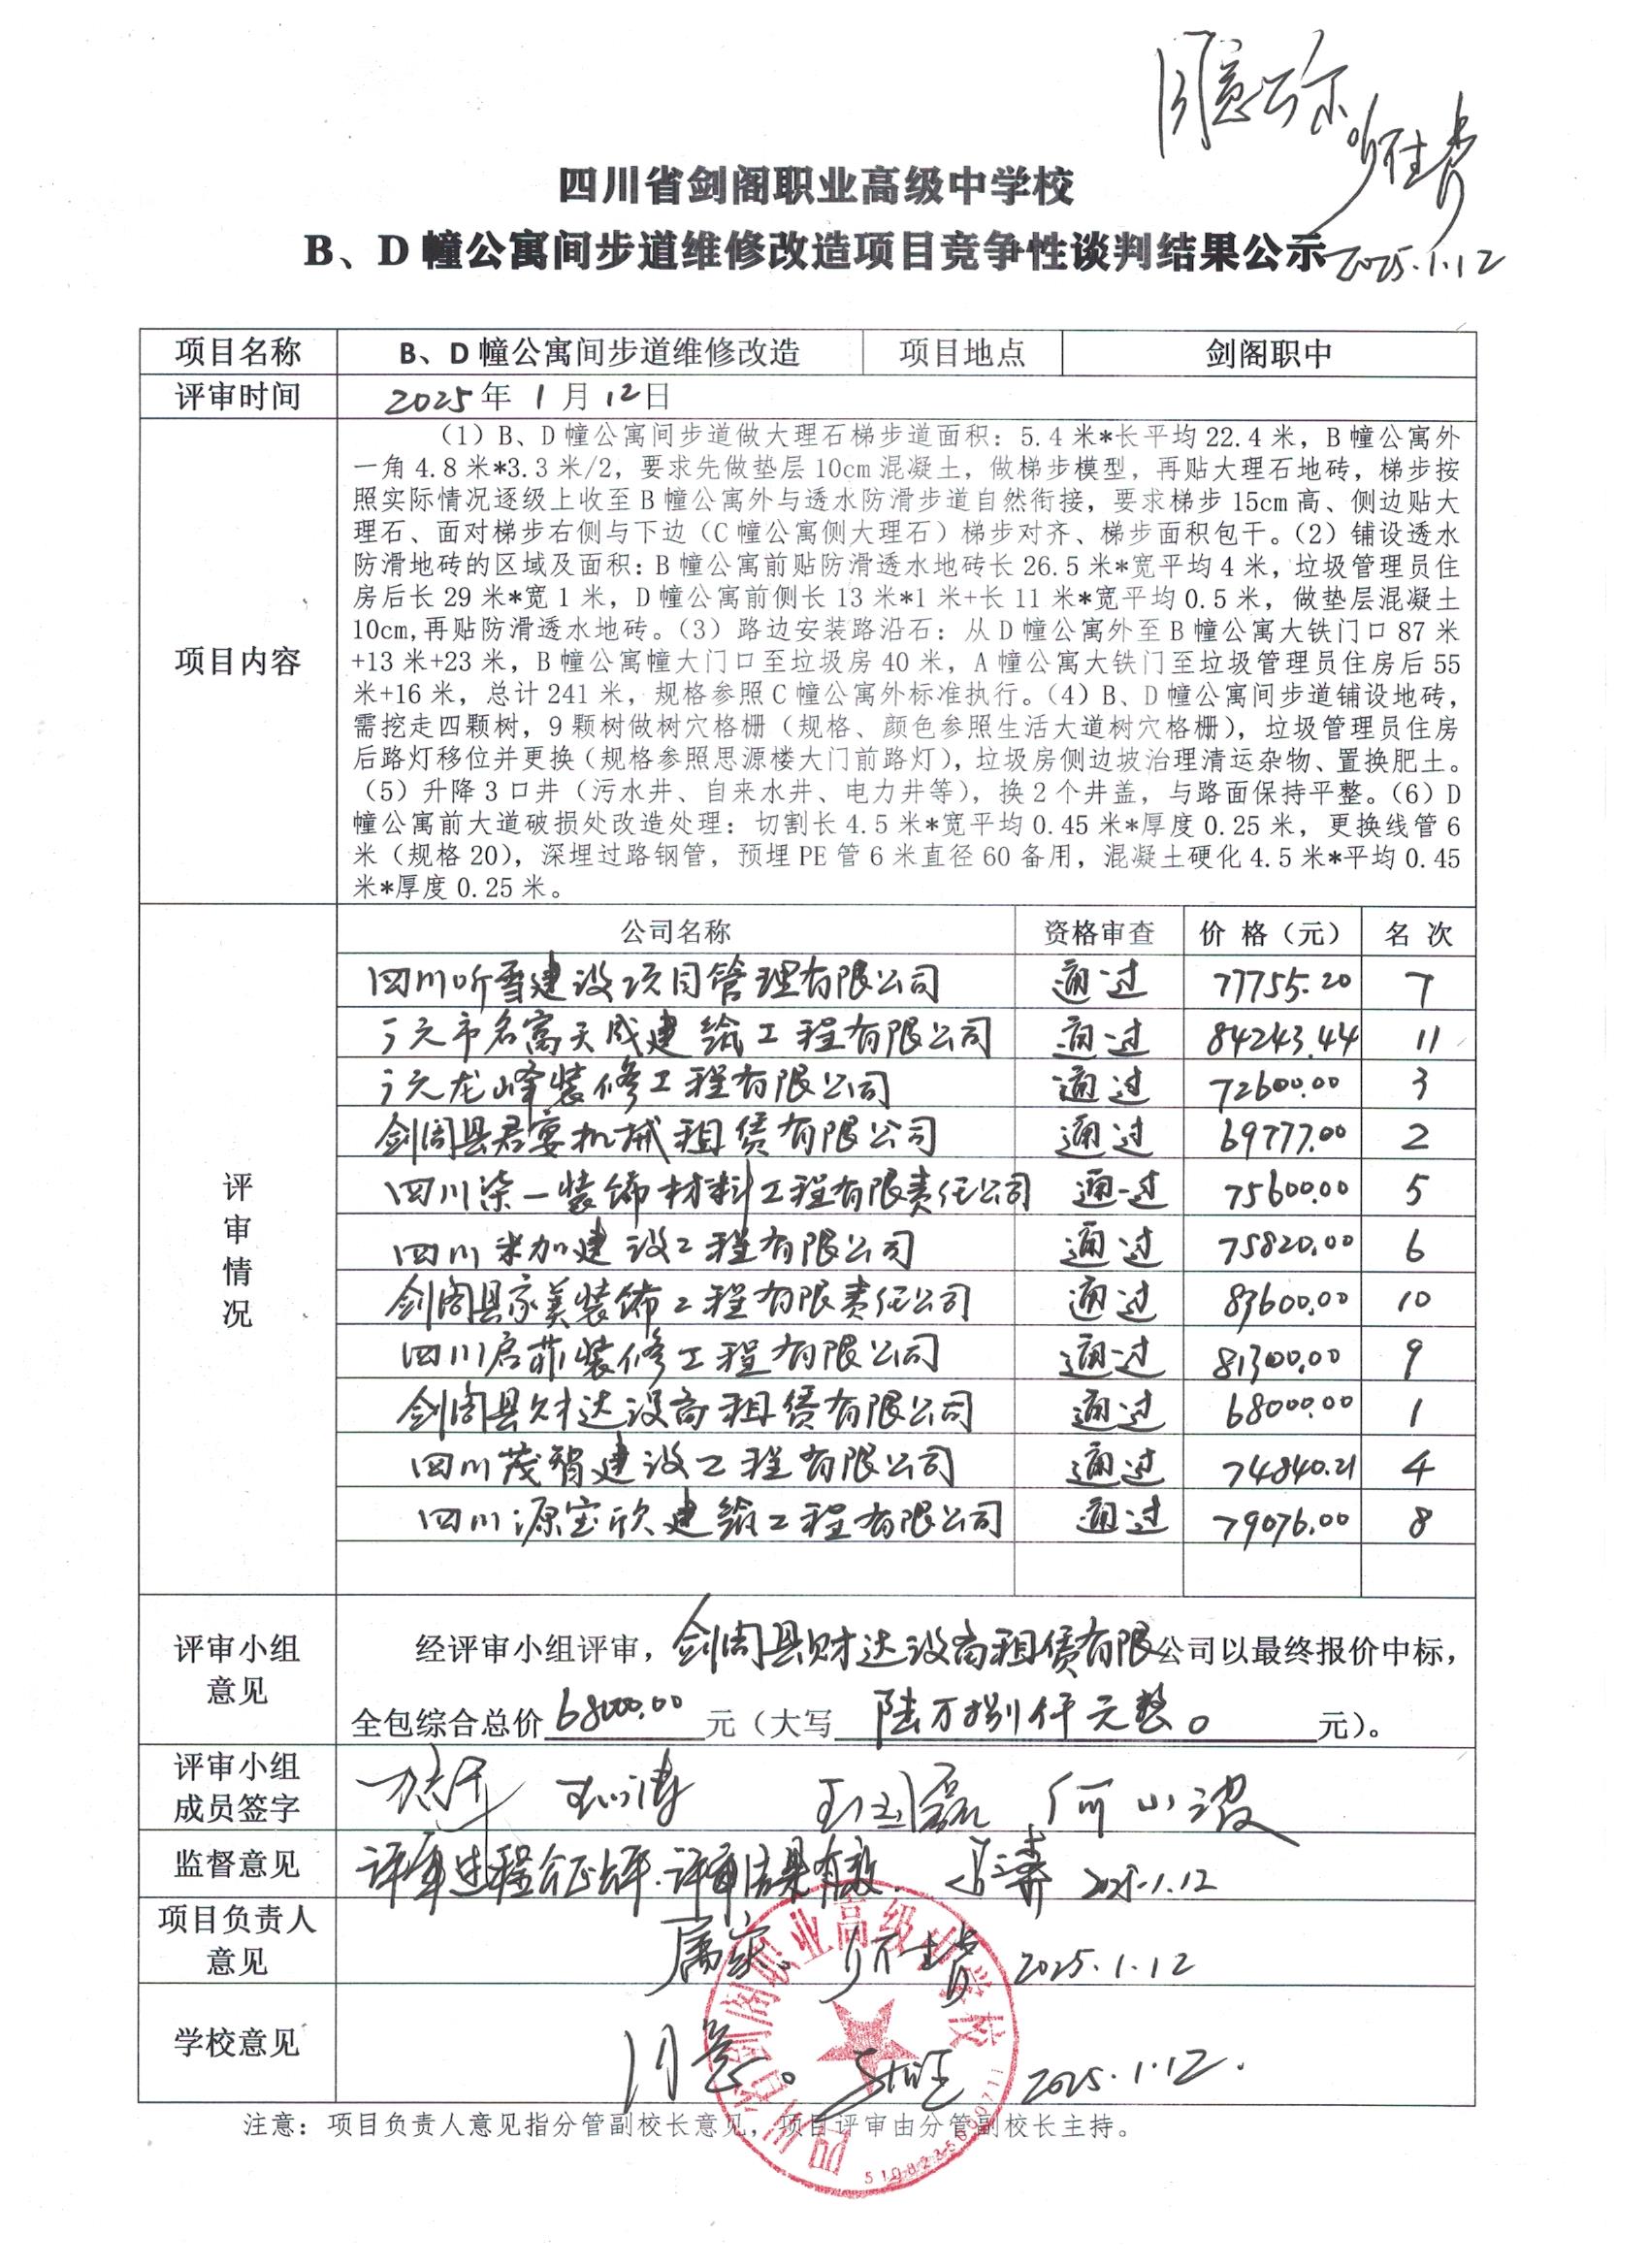 同意公示
2025.1.12
四川省剑阁职业高级中学校
B、D幢公寓间步道维修改造项目竞争性谈判结果公示
项目名称 B、D幢公寓间步道维修改造 项目地点 剑阁职中
评审时间 2025年1月12日
(1)B、D幢公寓间步道做大理石梯步道面积：5.4米*长平均22.4米，B幢公寓外
一角4.8米*3.3米/2，要求先做垫层10cm混凝土，做梯步模型，再贴大理石地砖，梯步按
照实际情况逐级上收至B幢公寓外与透水防滑步道自然衔接，要求梯步15cm高、侧边贴大
理石、面对梯步右侧与下边（C幢公寓侧大理石）梯步对齐、梯步面积包干。(2)铺设透水
防滑地砖的区域及面积：B幢公寓前贴防滑透水地砖长26.5米*宽平均4米，垃圾管理员住
房后长29米*宽1米，D幢公寓前侧长13米*1米+长11米*宽平均0.5米，做垫层混凝土
10cm,再贴防滑透水地砖。(3)路边安装路沿石：从D幢公寓外至B幢公寓大铁门口87米
+13米+23米，B幢公寓幢大门口至垃圾房40米，A幢公寓大铁门至垃圾管理员住房后55
米+16米，总计241米，规格参照C幢公寓外标准执行。(4)B、D幢公寓间步道铺设地砖，
需挖走四颗树，9颗树做树穴格栅（规格、颜色参照生活大道树穴格栅），垃圾管理员住房
后路灯移位并更换（规格参照思源楼大门前路灯），垃圾房侧边坡治理清运杂物、置换肥土。
(5)升降3口井（污水井、自来水井、电力井等），换2个井盖，与路面保持平整。(6)D
幢公寓前大道破损处改造处理：切割长4.5米*宽平均0.45米*厚度0.25米，更换线管6
米（规格20），深埋过路钢管，预埋PE管6米直径60备用，混凝土硬化4.5米*平均0.45
米*厚度0.25米。
项目内容
评审情况
公司名称 资格审查 价格（元） 名次
四川听雪建设项目管理有限公司 通过 77755.20 7
广元市名寓天成建筑工程有限公司 通过 84243.44 11
广元龙峰装修工程有限公司 通过 72600.00 3
剑阁县君宴机械租赁有限公司 通过 69777.00 2
四川柒一装饰材料工程有限责任公司 通过 75600.00 5
四川米加建设工程有限公司 通过 75820.00 6
剑阁县家美装饰工程有限责任公司 通过 83600.00 10
四川启菲装修工程有限公司 通过 81300.00 9
剑阁县财达设备租赁有限公司 通过 68000.00 1
四川茂智建设工程有限公司 通过 74840.21 4
四川源宝欣建筑工程有限公司 通过 79076.00 8
评审小组
意见
经评审小组评审，剑阁县财达设备租赁有限公司以最终报价中标，
全包综合总价68000.00元（大写 陆万捌仟元整。元）。
评审小组
成员签字
何小波
监督意见 评审过程公正公平.评审结果有效. 2025.1.12
项目负责人
意见
属实。 2025.1.12
学校意见 同意。 2025.1.12.
四川省剑阁职业高级中学校
注意：项目负责人意见指分管副校长意见，项目评审由分管副校长主持。